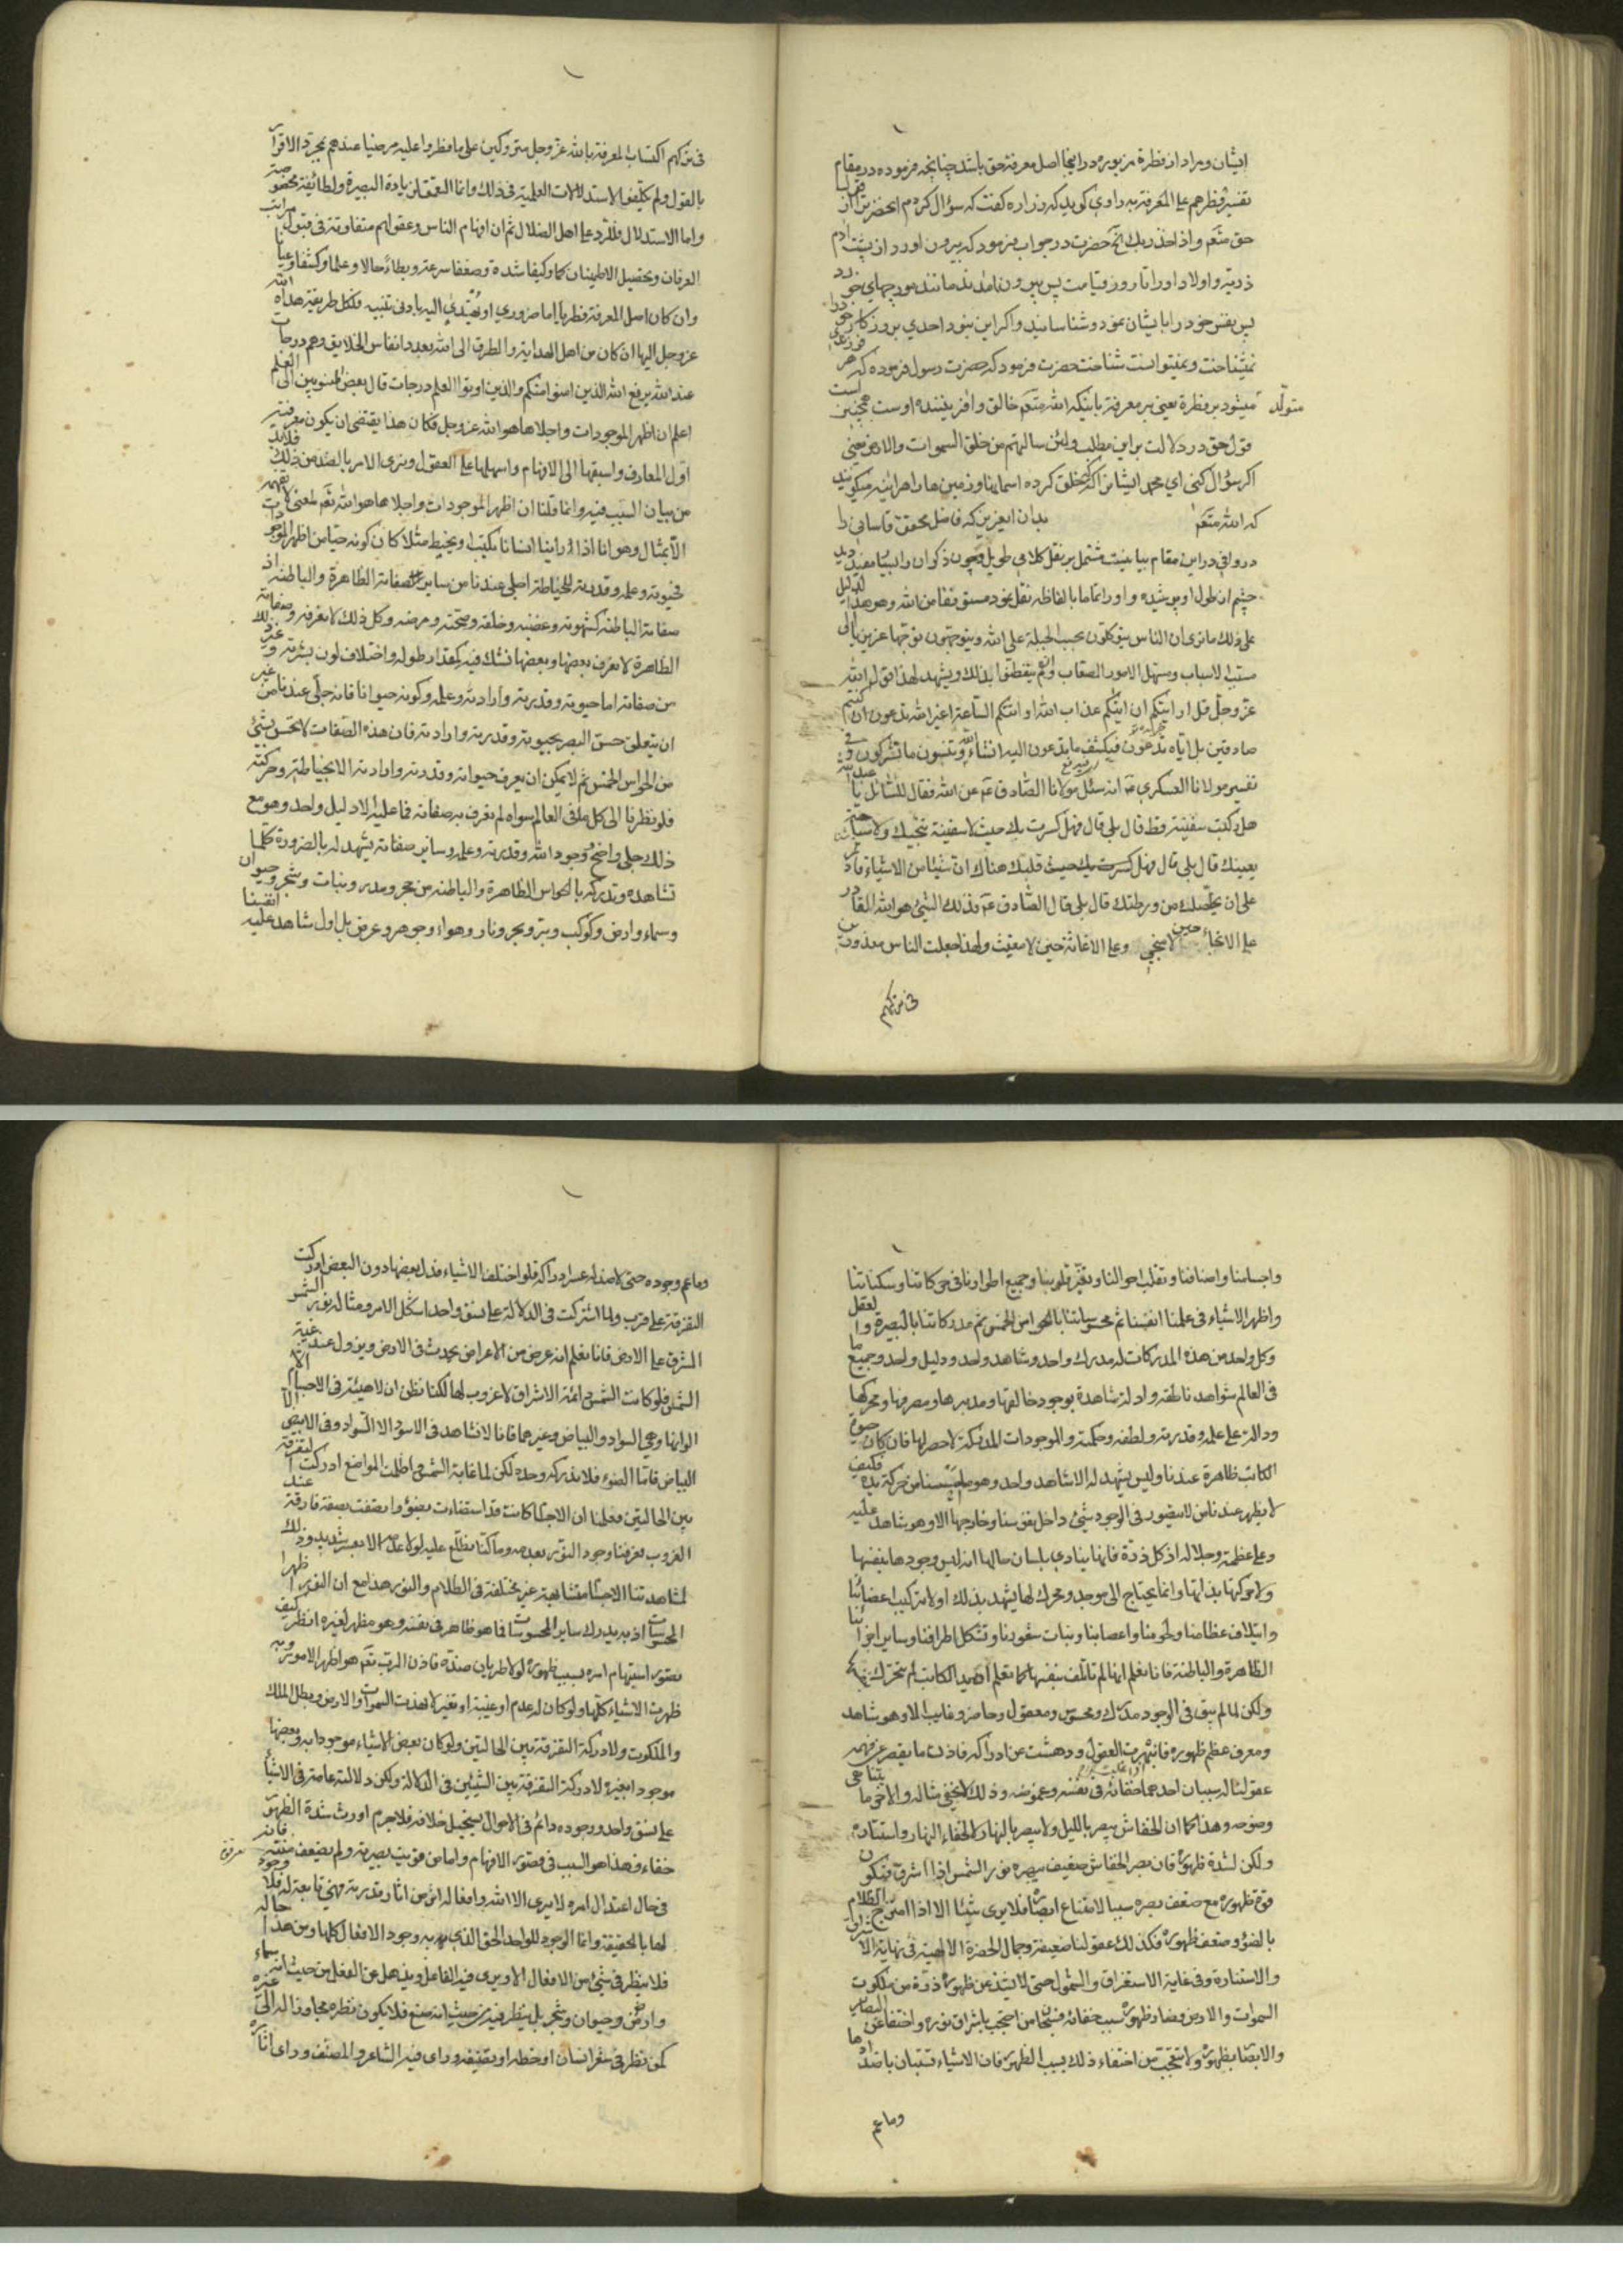 ایشان و مراد از فطرة مزبوره در اینجا اصل معرفة حق باشد چنانچه فرموده در مقام
تفسیر فطرهم علی المعرفة به راوی کوید که زراره کفت که سؤال کردم انحضرترا از قول
حق متعم واذ اخذ ربك الخ حضرت در جواب فرمود که بیرون اورد از پشت ادم
ذریة و اولاد او را تا روز قیامت پس بیرون نامدند مانند مورچهای خورد
پس نفس خود را بایشان نمود و شناسانید و اکر این نبود احدی پروردکار خود را
نمیشناخت و نمیتوانست شناخت حضرت فرمود که حضرت رسول فرموده که هر فرزندی
متولد میشود بر فطرة یعنی بر معرفة باینکه الله متعم خالق و افریننده اوست همچنین است
قول حق در دلالت بر این مطلب ولئن سالتهم من خلق السموات والارض یعنی
اکر سؤال کنی ای محمد ایشانرا که که خلق کرده اسمانها و زمین ها را هراینه میکویند
که الله متعم بدان ایعزیز که فاضل محقق قاسانی را
در وافی در این مقام بیانیست مشتمل بر نقل کلامی طویل و چون ذکر ان را بسیار مفید دید
چشم از طول او پوشیده و او را تماما بالفاظه نقل نمود مستوفقا من الله وهو هذا الدلیل
علی ذلك ما تری ان الناس یتوکلون بحسب الجبلة علی الله ویتوجهون توجها غریزیا الی
مسبب الاسباب ومسهل الامور الصعاب وان لم یتفطنوا لذلك ویشهد لهذا قول الله
عز وجل قل ارایتکم ان اتیکم عذاب الله او اتتکم الساعة اغیر الله تدعون ان کنتم
صادقین بل ایاه تدعون فیکشف ما تدعون الیه ان شاء وتنسون ما تشرکون و فی
تفسیر مولانا العسکری ع انه سئل مولانا الصادق ع عن الله فقال للسائل یا عبد الله
هل رکبت سفینة قط قال بلی قال فهل کسرت بك حیث لا سفینة تنجیك ولا سباحة
یغنیك قال بلی قال فهل تعلق قلبك هناك ان شیئا من الاشیاء قادر
علی ان یخلصك من ورطتك قال بلی قال الصادق ع فذلك الشئ هو الله القادر
علی الانجاء حین لا منجی وعلی الاغاثة حین لا مغیث ولهذا جعلت الناس معذورین
فی ترکهم
فی ترکهم اکتساب المعرفة بالله عز وجل متروکین علی ما فطروا علیه مرضیا عنهم بمجرد الاقرار
بالقول ولم یکلفوا الاستدلالات العلمیة فی ذلك وانما التعمق لزیادة البصیرة ولطائفة مخصوصة
واما الاستدلال فللرد علی اهل الضلال ثم ان افهام الناس وعقولهم متفاوتة فی قبول مراتب
العرفان وتحصیل الاطمینان کما وکیفا شدة وضعفا سرعة وبطأ حالا وعلما وکشفا وعیانا
وان کان اصل المعرفة فطریا اما ضروری او یهتدی الیه بادنی تنبیه فلکل طریقة هداه الله
عز وجل الیها ان کان من اهل الهدایة والطرق الی الله بعدد انفاس الخلایق وهم درجات
عند الله یرفع الله الذین امنوا منکم والذین اوتوا العلم درجات قال بعض المنسوبین الی العلم
اعلم ان اظهر الموجودات واجلاها هو الله عز وجل فکان هذا یقتضی ان یکون معرفته
اول المعارف واسبقها الی الافهام واسهلها علی العقول ونری الامر بالضد من ذلك فلابد
من بیان السبب فیه وانما قلنا ان اظهر الموجودات واجلاها هو الله تعم لمعنی لا نفهمه
الا بمثال وهو انا اذا راینا انسانا یکتب او یخیط مثلا کان کونه حیا من اظهر الموجودات
فحیوته وعلمه وقدرته للخیاطة اجلی عندنا من سایر صفاته الظاهرة والباطنة اذ
صفاته الباطنة کشهوته وغضبه وخلقه وصحته ومرضه وکل ذلك لا نعرفه وصفاته
الظاهرة لا نعرف بعضها وبعضها نشك فیه کمقدار طوله واختلاف لون بشرته وغیر ذلك
من صفاته اما حیوته وقدرته وارادته وعلمه وکونه حیوانا فانه جلی عندنا من غیر
ان یتعلق حس البصر بحیوته وقدرته وارادته فان هذه الصفات لا تحس بشئ
من الحواس الخمس ثم لا یمکن ان یعرف حیوته وقدرته وارادته الا بخیاطته وحرکته
فلو نظرنا الی کل ما فی العالم سواه لم نعرف به صفاته فما علیه الا دلیل واحد وهو مع
ذلك جلی واضح ووجود الله وقدرته وعلمه وسایر صفاته یشهد له بالضرورة کلما
نشاهده وندرکه بالحواس الظاهرة والباطنة من حجر ومدر ونبات وشجر وحیوان
وسماء وارض وکوکب وبر وبحر ونار وهواء وجوهر وعرض بل اول شاهد علیه انفسنا
واجسامنا واصنافنا وتقلب احوالنا وتغیر قلوبنا وجمیع اطوارنا فی حرکاتنا وسکناتنا
واظهر الاشیاء فی علمنا انفسنا ثم محسوساتنا بالحواس الخمس ثم مدرکاتنا بالبصیرة والعقل
وکل واحد من هذه المدرکات له مدرك واحد وشاهد واحد ودلیل واحد وجمیع ما
فی العالم شواهد ناطقة وادلة شاهدة بوجود خالقها ومدبرها ومصرفها ومحرکها
ودالة علی علمه وقدرته ولطفه وحکمته والموجودات المدرکة لا حصر لها فان کان حیوة
الکاتب ظاهرة عندنا ولیس یشهد له الا شاهد واحد وهو ما احسسنا من حرکة یده فکیف
لا یظهر عندنا من لا یتصور فی الوجود شئ داخل نفوسنا وخارجها الا وهو شاهد علیه
وعلی عظمته وجلاله اذ کل ذرة فانها ینادی بلسان حالها انه لیس وجودها بنفسها
ولا حرکتها بذاتها وانما یحتاج الی موجد ومحرك لها یشهد بذلك اولا ترکیب اعضائنا
وایتلاف عظامنا ولحومنا واعصابنا ونبات شعورنا وتشکل اطرافنا وسایر اجزائنا
الظاهرة والباطنة فانا نعلم انها لم تاتلف بنفسها کما نعلم ان ید الکاتب لم تتحرك بنفسها
ولکن لما لم یبق فی الوجود مدرك ومحسوس ومعقول وحاضر وغایب الا وهو شاهد
ومعرف عظم ظهوره فانبهرت العقول ودهشت عن ادراکه فاذن ما یقصر عن فهمه
عقولنا له سببان احدهما خفائه فی نفسه وغموضه وذلك لا یخفی مثاله والاخر ما یتناهی
وضوحه وهذا کما ان الخفاش یبصر باللیل ولا یبصر بالنهار لا لخفاء النهار واستتاره
ولکن لشدة ظهوره فان بصر الخفاش ضعیف یبهره نور الشمس اذا اشرق فیکون
قوة ظهوره مع ضعف بصره سببا لامتناع ابصاره فلا یری شیئا الا اذا امتزج الظلام
بالضوء وضعف ظهوره فکذلك عقولنا ضعیفة وجمال الحضرة الالهیة فی نهایة الاشراق
والاستنارة وفی غایة الاستغراق والشمول حتی لا یشذ عن ظهوره ذرة من ملکوت
السموات والارض فصار ظهوره سبب خفائه فسبحان من احتجب باشراق نوره واختفی عن البصایر
والابصار بظهوره ولا تتعجب من اختفاء ذلك بسبب الظهور فان الاشیاء تستبان باضدادها
وما عم
وما عم وجوده حتی لا ضد له عسر ادراکه فلو اختلف الاشیاء فدل بعضها دون البعض ادرکت
التفرقة علی قرب ولما اشترکت فی الدلالة علی نسق واحد اشکل الامر ومثاله نور الشمس
المشرق علی الارض فانا نعلم انه عرض من الاعراض یحدث فی الارض ویزول عند غیبة
الشمس فلو کانت الشمس دائمة الاشراق لا غروب لها لکنا نظن ان لا هیئة فی الاجسام الا
الوانها وهی السواد والبیاض وغیرهما فانا لا نشاهد فی الاسود الا السواد وفی الابیض الا
البیاض فاما الضوء فلا ندرکه وحده لکن لما غابت الشمس واظلمت المواضع ادرکت التفرقة
بین الحالتین فعلمنا ان الاجسام کانت قد استضاءت بضوء واتصفت بصفة فارقتها عند
الغروب فعرفنا وجود النور بعدمه وما کنا نطلع علیه لولا عدمه الا بعسر شدید وذلك
لمشاهدتنا الاجسام متشابهة غیر مختلفة فی الظلام والنور هذا مع ان النور اظهر
المحسوسات اذ به یدرك سایر المحسوسات فما هو ظاهر فی نفسه وهو مظهر لغیره انظر کیف
تصور استبهام امره بسبب ظهوره لولا طریان ضده فاذن الرب تعم هو اظهر الامور وبه
ظهرت الاشیاء کلها ولو کان له عدم او غیبة او تغیر لانهدت السموات والارض وبطل الملك
والملکوت ولادرکت التفرقة بین الحالتین ولو کان بعض الاشیاء موجودا به وبعضها
موجودا بغیره لادرکت التفرقة بین الشیئین فی الدلالة ولکن دلالته عامة فی الاشیاء
علی نسق واحد ووجوده دائم فی الاحوال یستحیل خلافه فلا جرم اورث شدة الظهور
خفاء فهذا هو السبب فی قصور الافهام واما من قویت بصیرته ولم یضعف منته فانه
فی حال اعتدال امره لا یری الا الله وافعاله اثر من اثار قدرته فهی تابعة له فلا وجود
لها بالحقیقة وانما الوجود للواحد الحق الذی به وجود الافعال کلها ومن هذا حاله
فلا ینظر فی شئ من الافعال الا ویری فیه الفاعل ویذهل عن الفعل من حیث انه سماء
وارض وحیوان وشجر بل ینظر فیه من حیث انه صنع فلا یکون نظره مجاوزا له الی غیره
کمن نظر فی شعر انسان او خطه او تصنیفه ورای فیه الشاعر والمصنف ورای اثاره